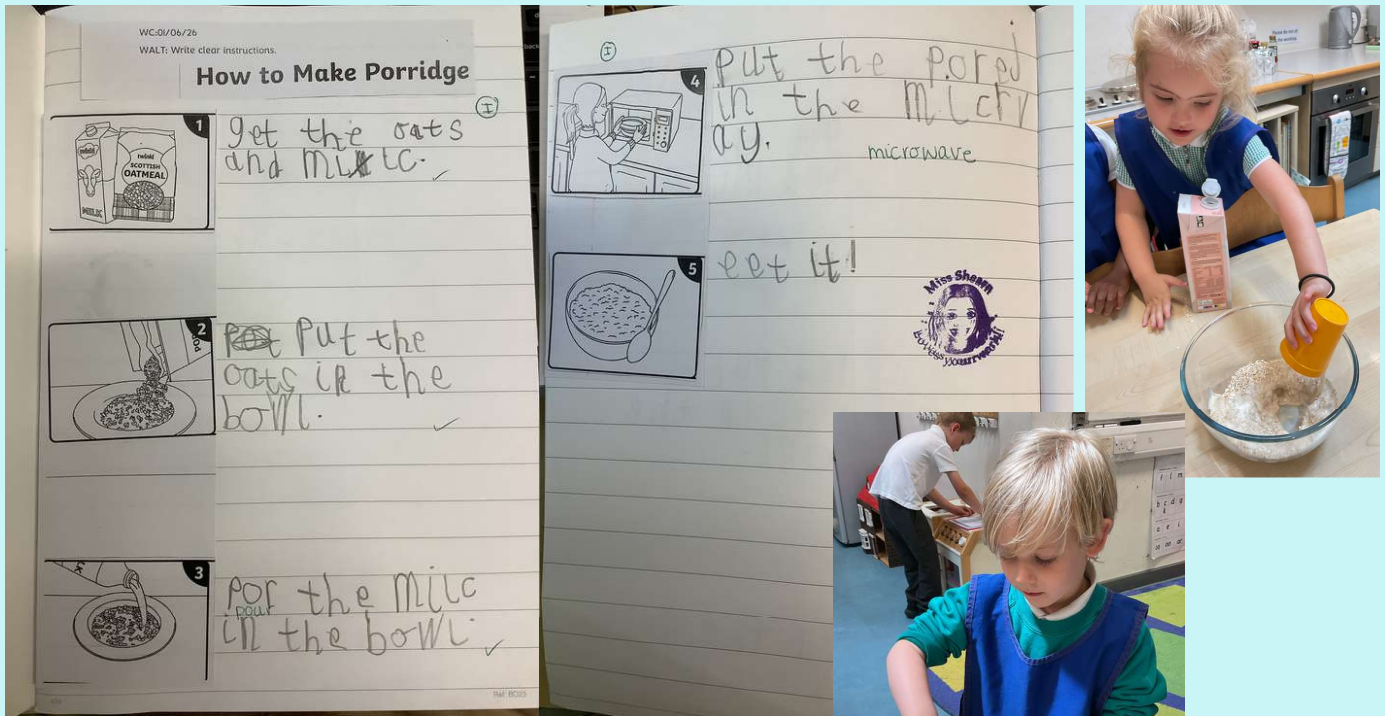 WC:01/06/26
WALT: Write clear instructions.
How to Make Porridge
I
1
twinkl
MILK
twinkl
SCOTTISH
OATMEAL
get the oats
and milc.
2
put the
oats in the
bowl.
3
por the milc
pour
in the bowl.
Ref: BC025
I
4
put the pored
in the micrv
ay.
microwave
5
eet it!
Miss Shearn
Please do not